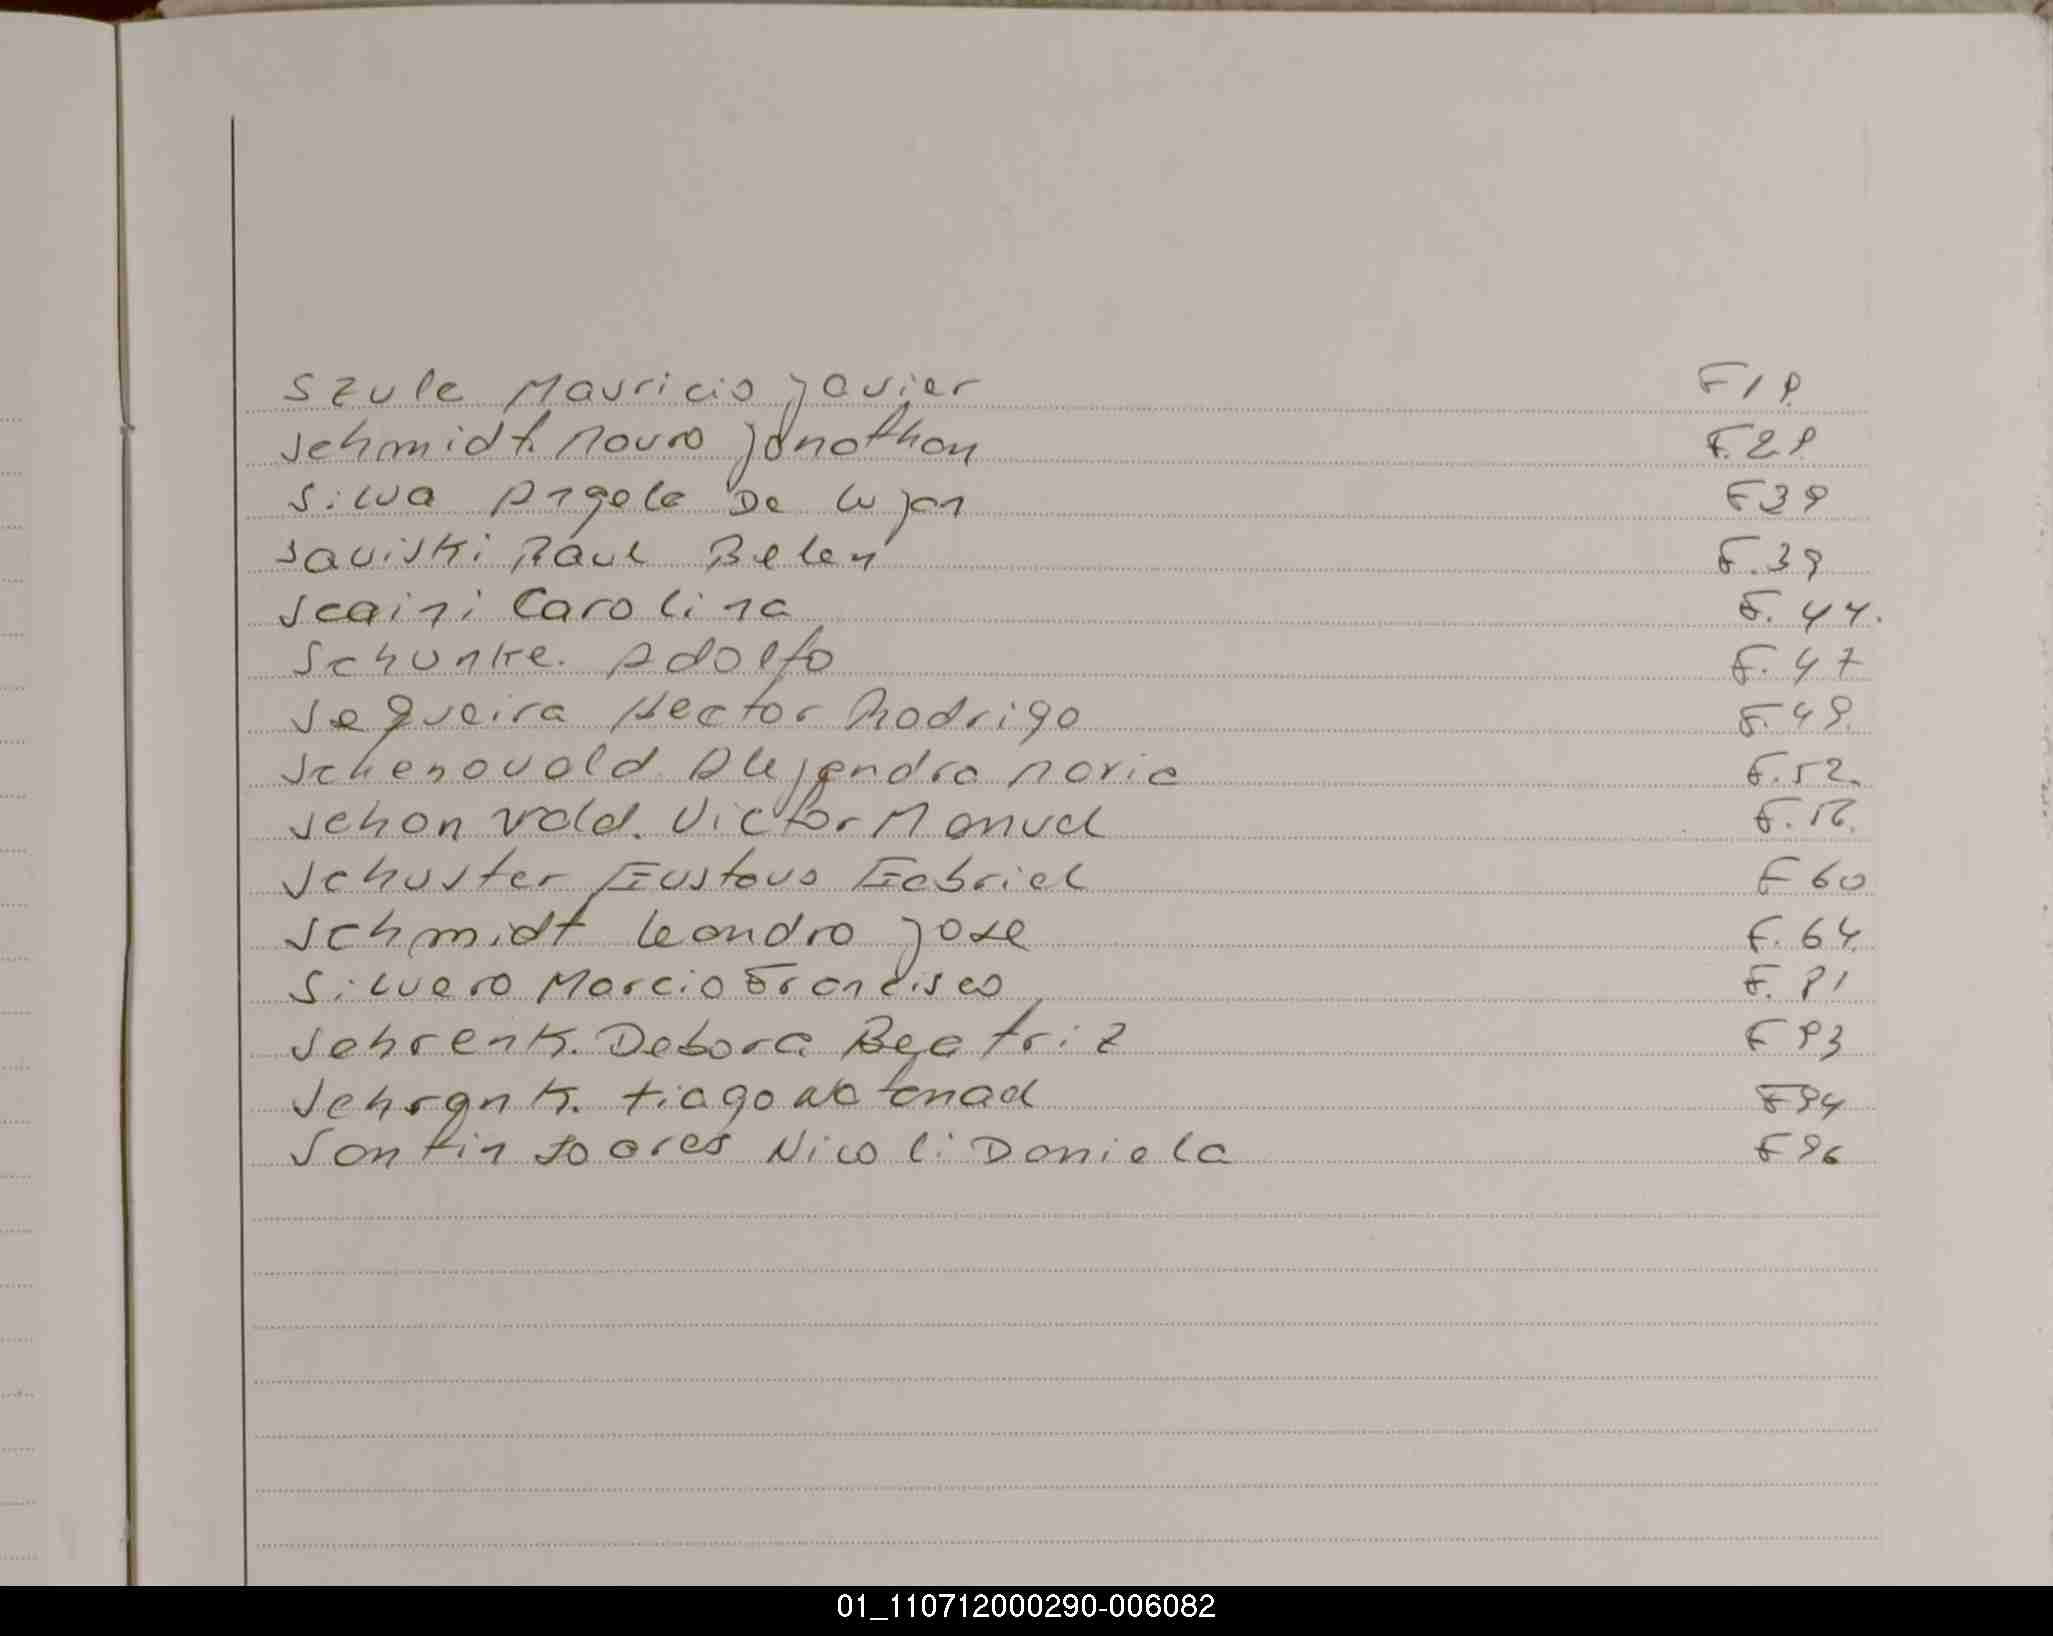 Szule Mauricio Javier F18.
Schmidt. Mauro Jonathan F.28
Silva Angela De Lujan F38
Saviski Raul Belen F.39
Scaini Carolina F.44.
Schunke. Adolfo F.47
Sequeira Hector Rodrigo F.49.
Schenovald Alejandra Maria F.52.
Schonvald. Victor Manuel F.56.
Schuster Gustavo Gabriel F60
Schmidt Leandro Jose F.64.
Silvero Marcio Francisco F.81
Schrenk. Debora Beatriz F93
Schrank. tiago F94
Santin Soares Nicoli Daniela F96
01_110712000290-006082